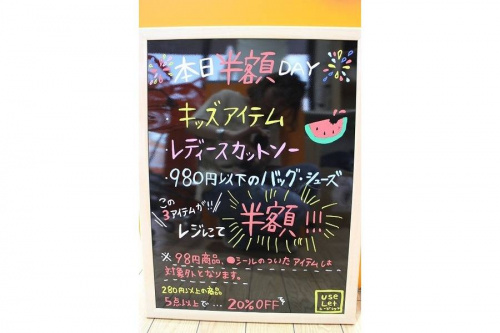 本日半額DAY
・キッズアイテム
・レディースカットソー
・980円以下のバッグ・シューズ
この
3アイテムが!!
レジにて
半額!!!
※98円商品、●シールのついたアイテムは
対象外となります。
280円以上の商品
5点以上で… 20%OFF
use
Let